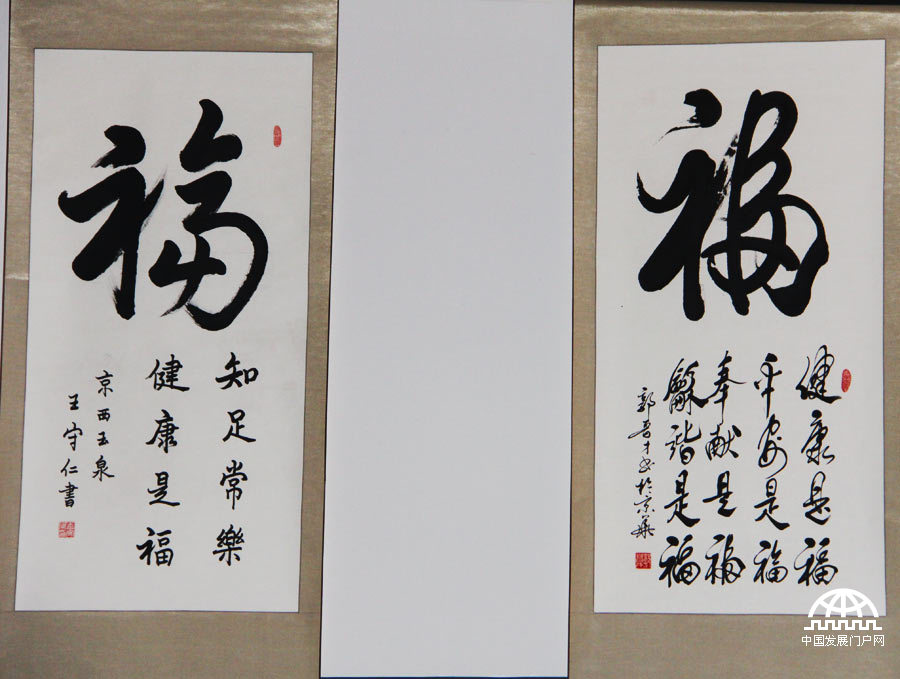 福
知足常樂
健康是福
京西玉泉
王守仁書
福
健康是福
平安是福
奉献是福
龢谐是福
郭晋才书於京華
中国发展门户网